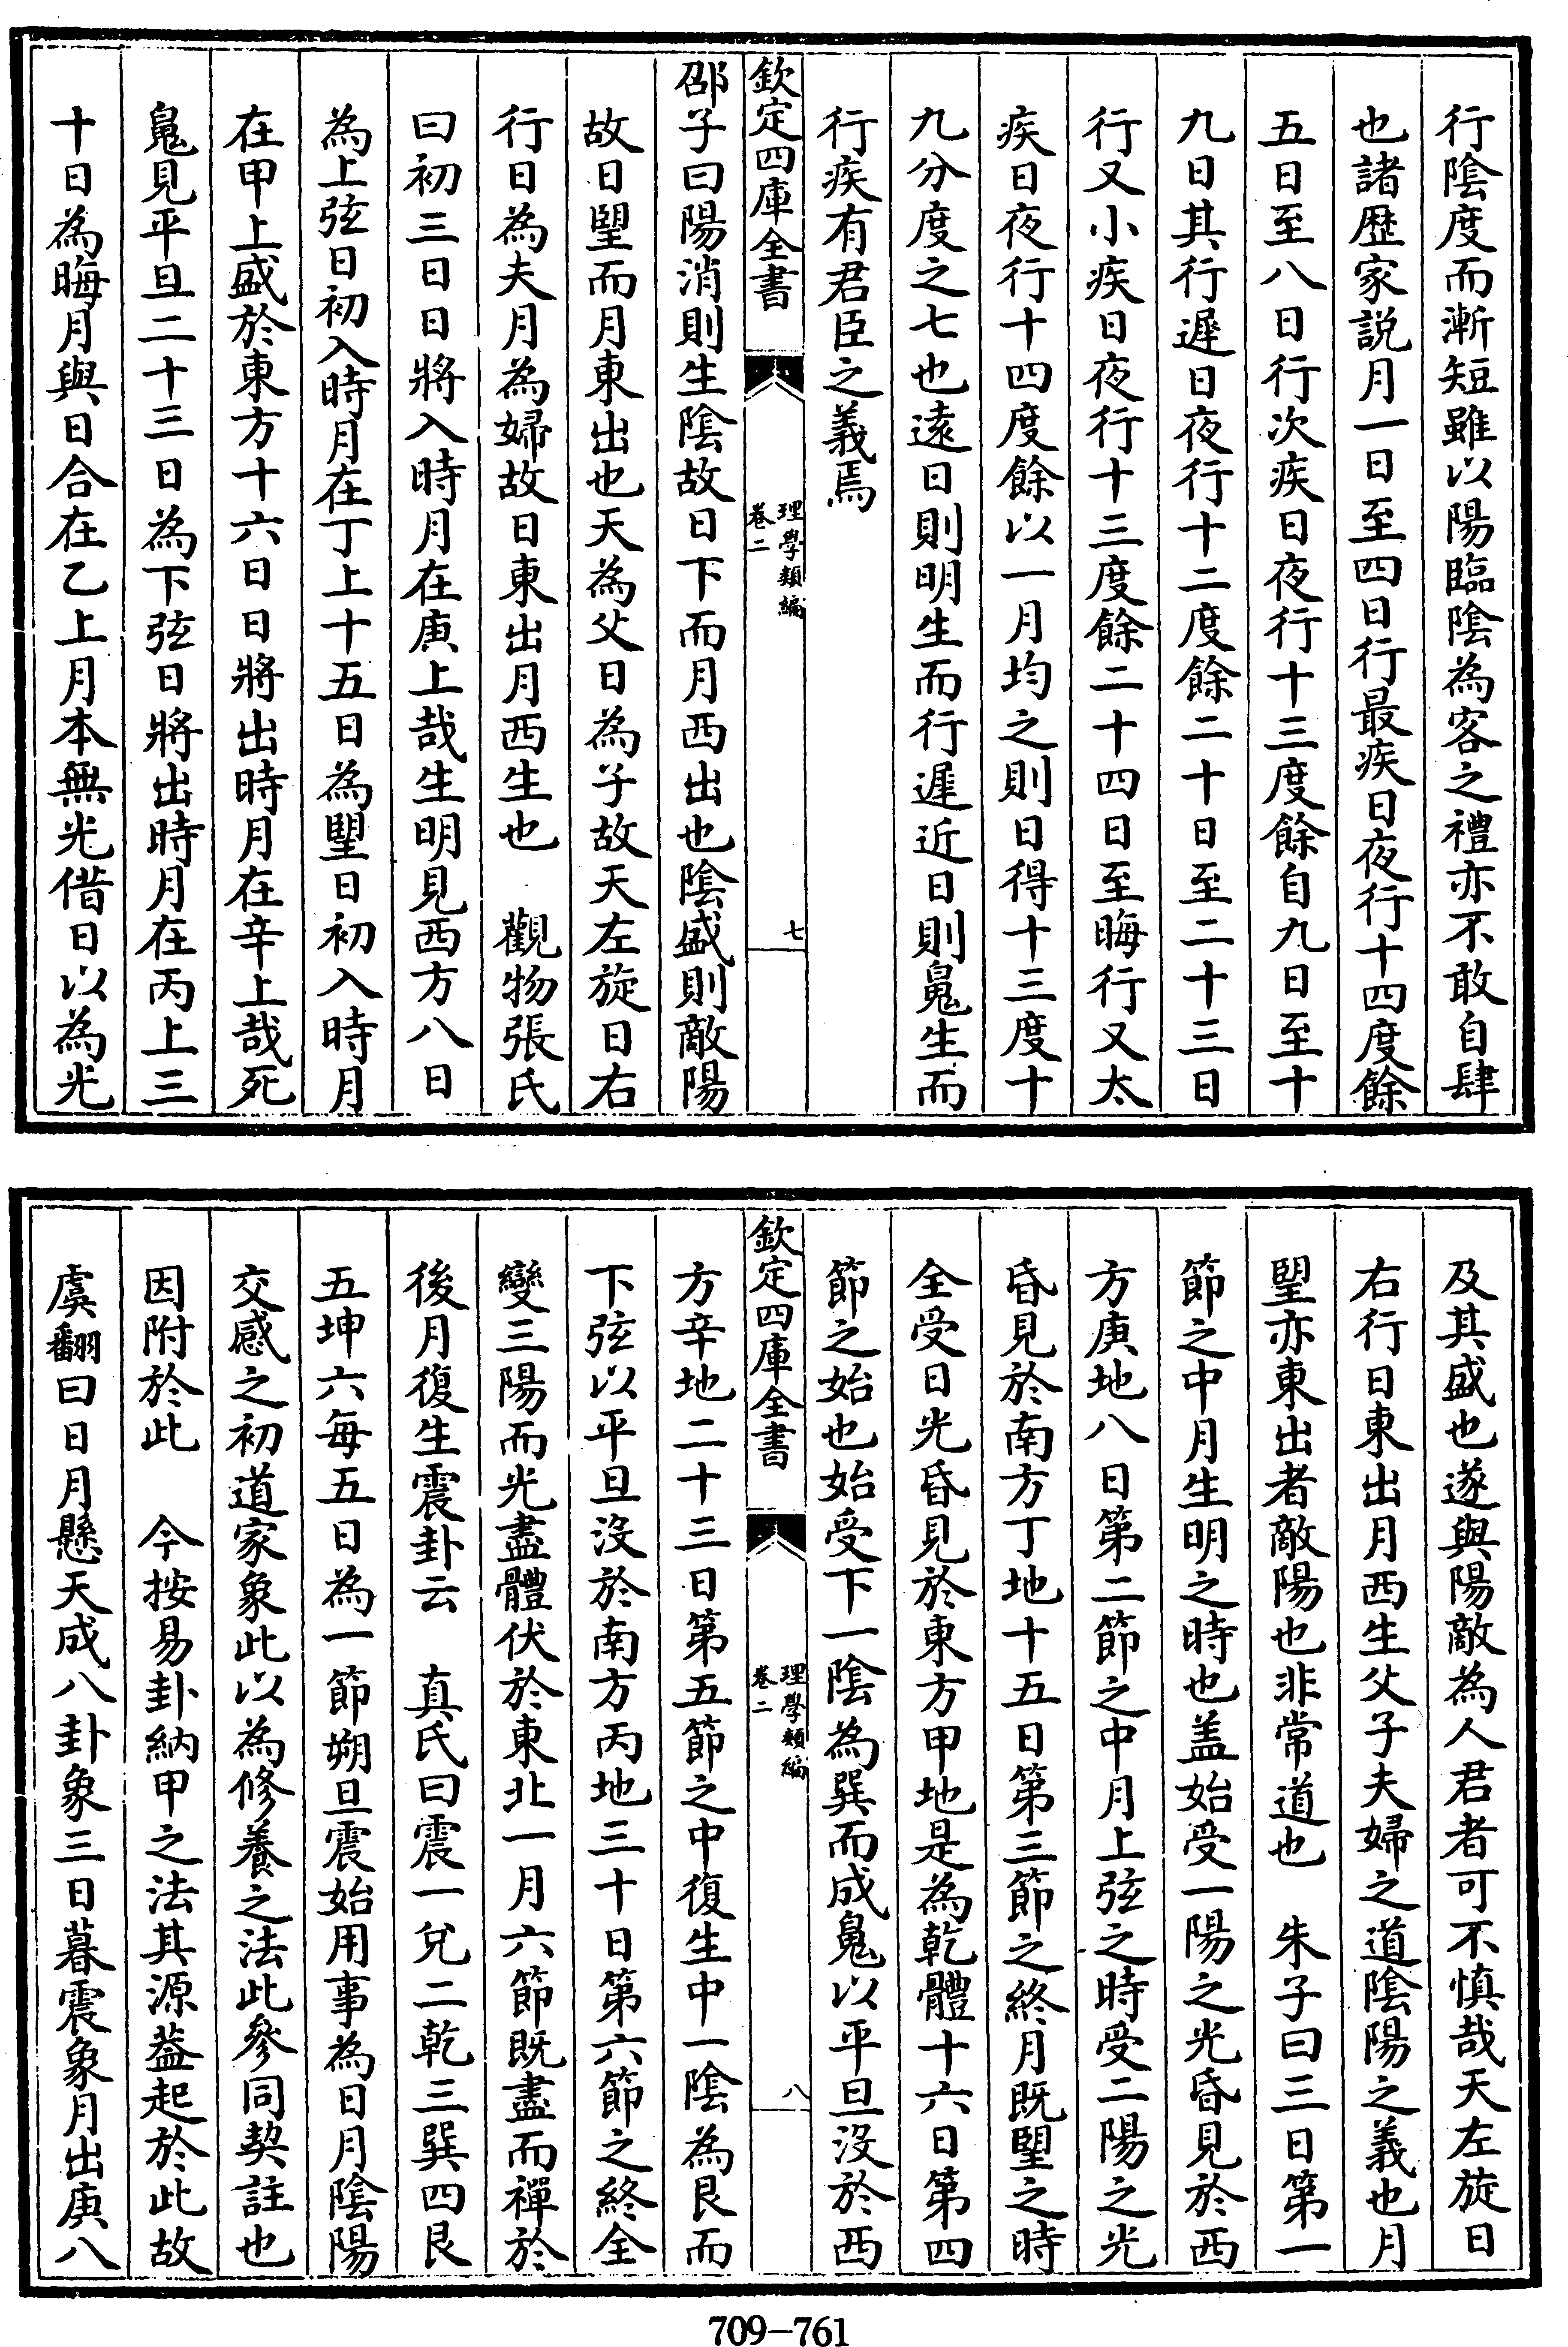 行陰度而漸短雖以陽臨陰為客之禮亦不敢自肆
也諸歴家説月一日至四日行最疾日夜行十四度餘
五日至八日行次疾日夜行十三度餘自九日至十
九日其行遲日夜行十二度餘二十日至二十三日
行又小疾日夜行十三度餘二十四日至晦行又太
疾日夜行十四度餘以一月均之則日得十三度十
九分度之七也遠日則明生而行遲近日則䰟生而
行疾有君臣之義焉
欽定四庫全書
理學類編
卷二
七
邵子曰陽消則生陰故日下而月西出也陰盛則敵陽
故日朢而月東出也天為父日為子故天左旋日右
行日為夫月為婦故日東出月西生也　觀物張氏
曰初三日日將入時月在庚上哉生明見西方八日
為上弦日初入時月在丁上十五日為朢日初入時月
在甲上盛於東方十六日日將出時月在辛上哉死
䰟見平旦二十三日為下弦日將出時月在丙上三
十日為晦月與日合在乙上月本無光借日以為光
及其盛也遂與陽敵為人君者可不慎哉天左旋日
右行日東出月西生父子夫婦之道陰陽之義也月
朢亦東出者敵陽也非常道也　朱子曰三日第一
節之中月生明之時也盖始受一陽之光昏見於西
方庚地八日第二節之中月上弦之時受二陽之光
昏見於南方丁地十五日第三節之終月既朢之時
全受日光昏見於東方甲地是為乾體十六日第四
節之始也始受下一陰為巽而成䰟以平旦沒於西
欽定四庫全書
理學類編
卷二
八
方辛地二十三日第五節之中復生中一陰為艮而
下弦以平旦沒於南方丙地三十日第六節之終全
變三陽而光盡體伏於東北一月六節既盡而禪於
後月復生震卦云　真氏曰震一兌二乾三巽四艮
五坤六每五日為一節朔旦震始用事為日月陰陽
交感之初道家象此以為修養之法此參同契註也
因附於此　今按易卦納甲之法其源葢起於此故
虞翻曰日月懸天成八卦象三日暮震象月出庚八
709-761